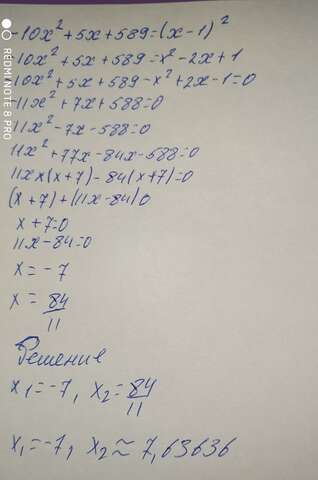 -10x² + 5x + 589 = (x - 1)²
-10x² + 5x + 589 = x² - 2x + 1
-10x² + 5x + 589 - x² + 2x - 1 = 0
-11x² + 7x + 588 = 0
11x² - 7x - 588 = 0
11x² + 77x - 84x - 588 = 0
11x x (x + 7) - 84(x + 7) = 0
(x + 7) + (11x - 84) 0
x + 7 = 0
11x - 84 = 0
x = -7
x = 84/11
Решение
x₁ = -7, x₂ = 84/11
x₁ = -7, x₂ ≈ 7,63636
REDMI NOTE 8 PRO